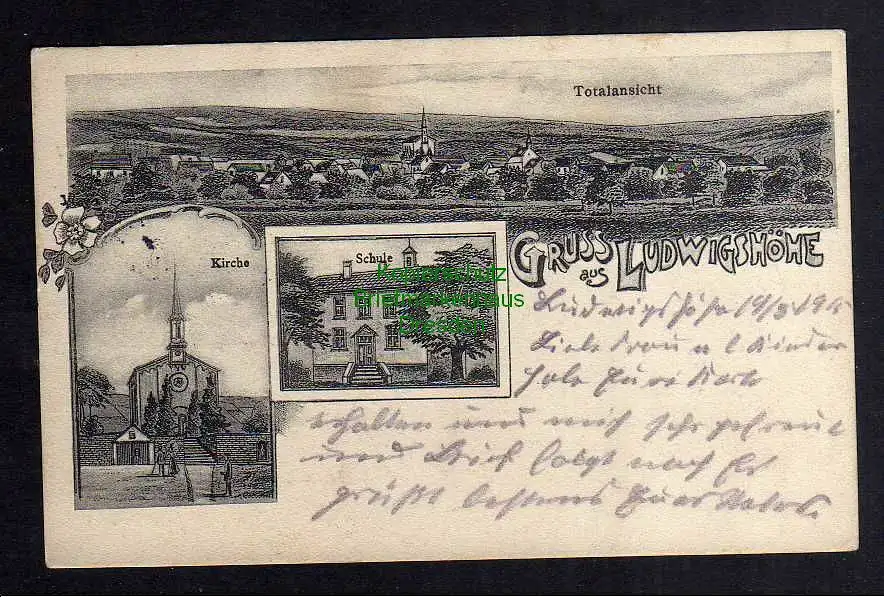 Totalansicht
GRUSS
aus LUDWIGSHÖHE
Kirche
Schule
Kopierschutz
Briefmarkenhaus
Dresden
Ludwigshöhe 19/3 191
Liebe Frau u l Kinder
habe Eure Karte
erhalten und mich sehr gefreut
und Brief folgt nach Es
grüßt bestens Euer Vater.